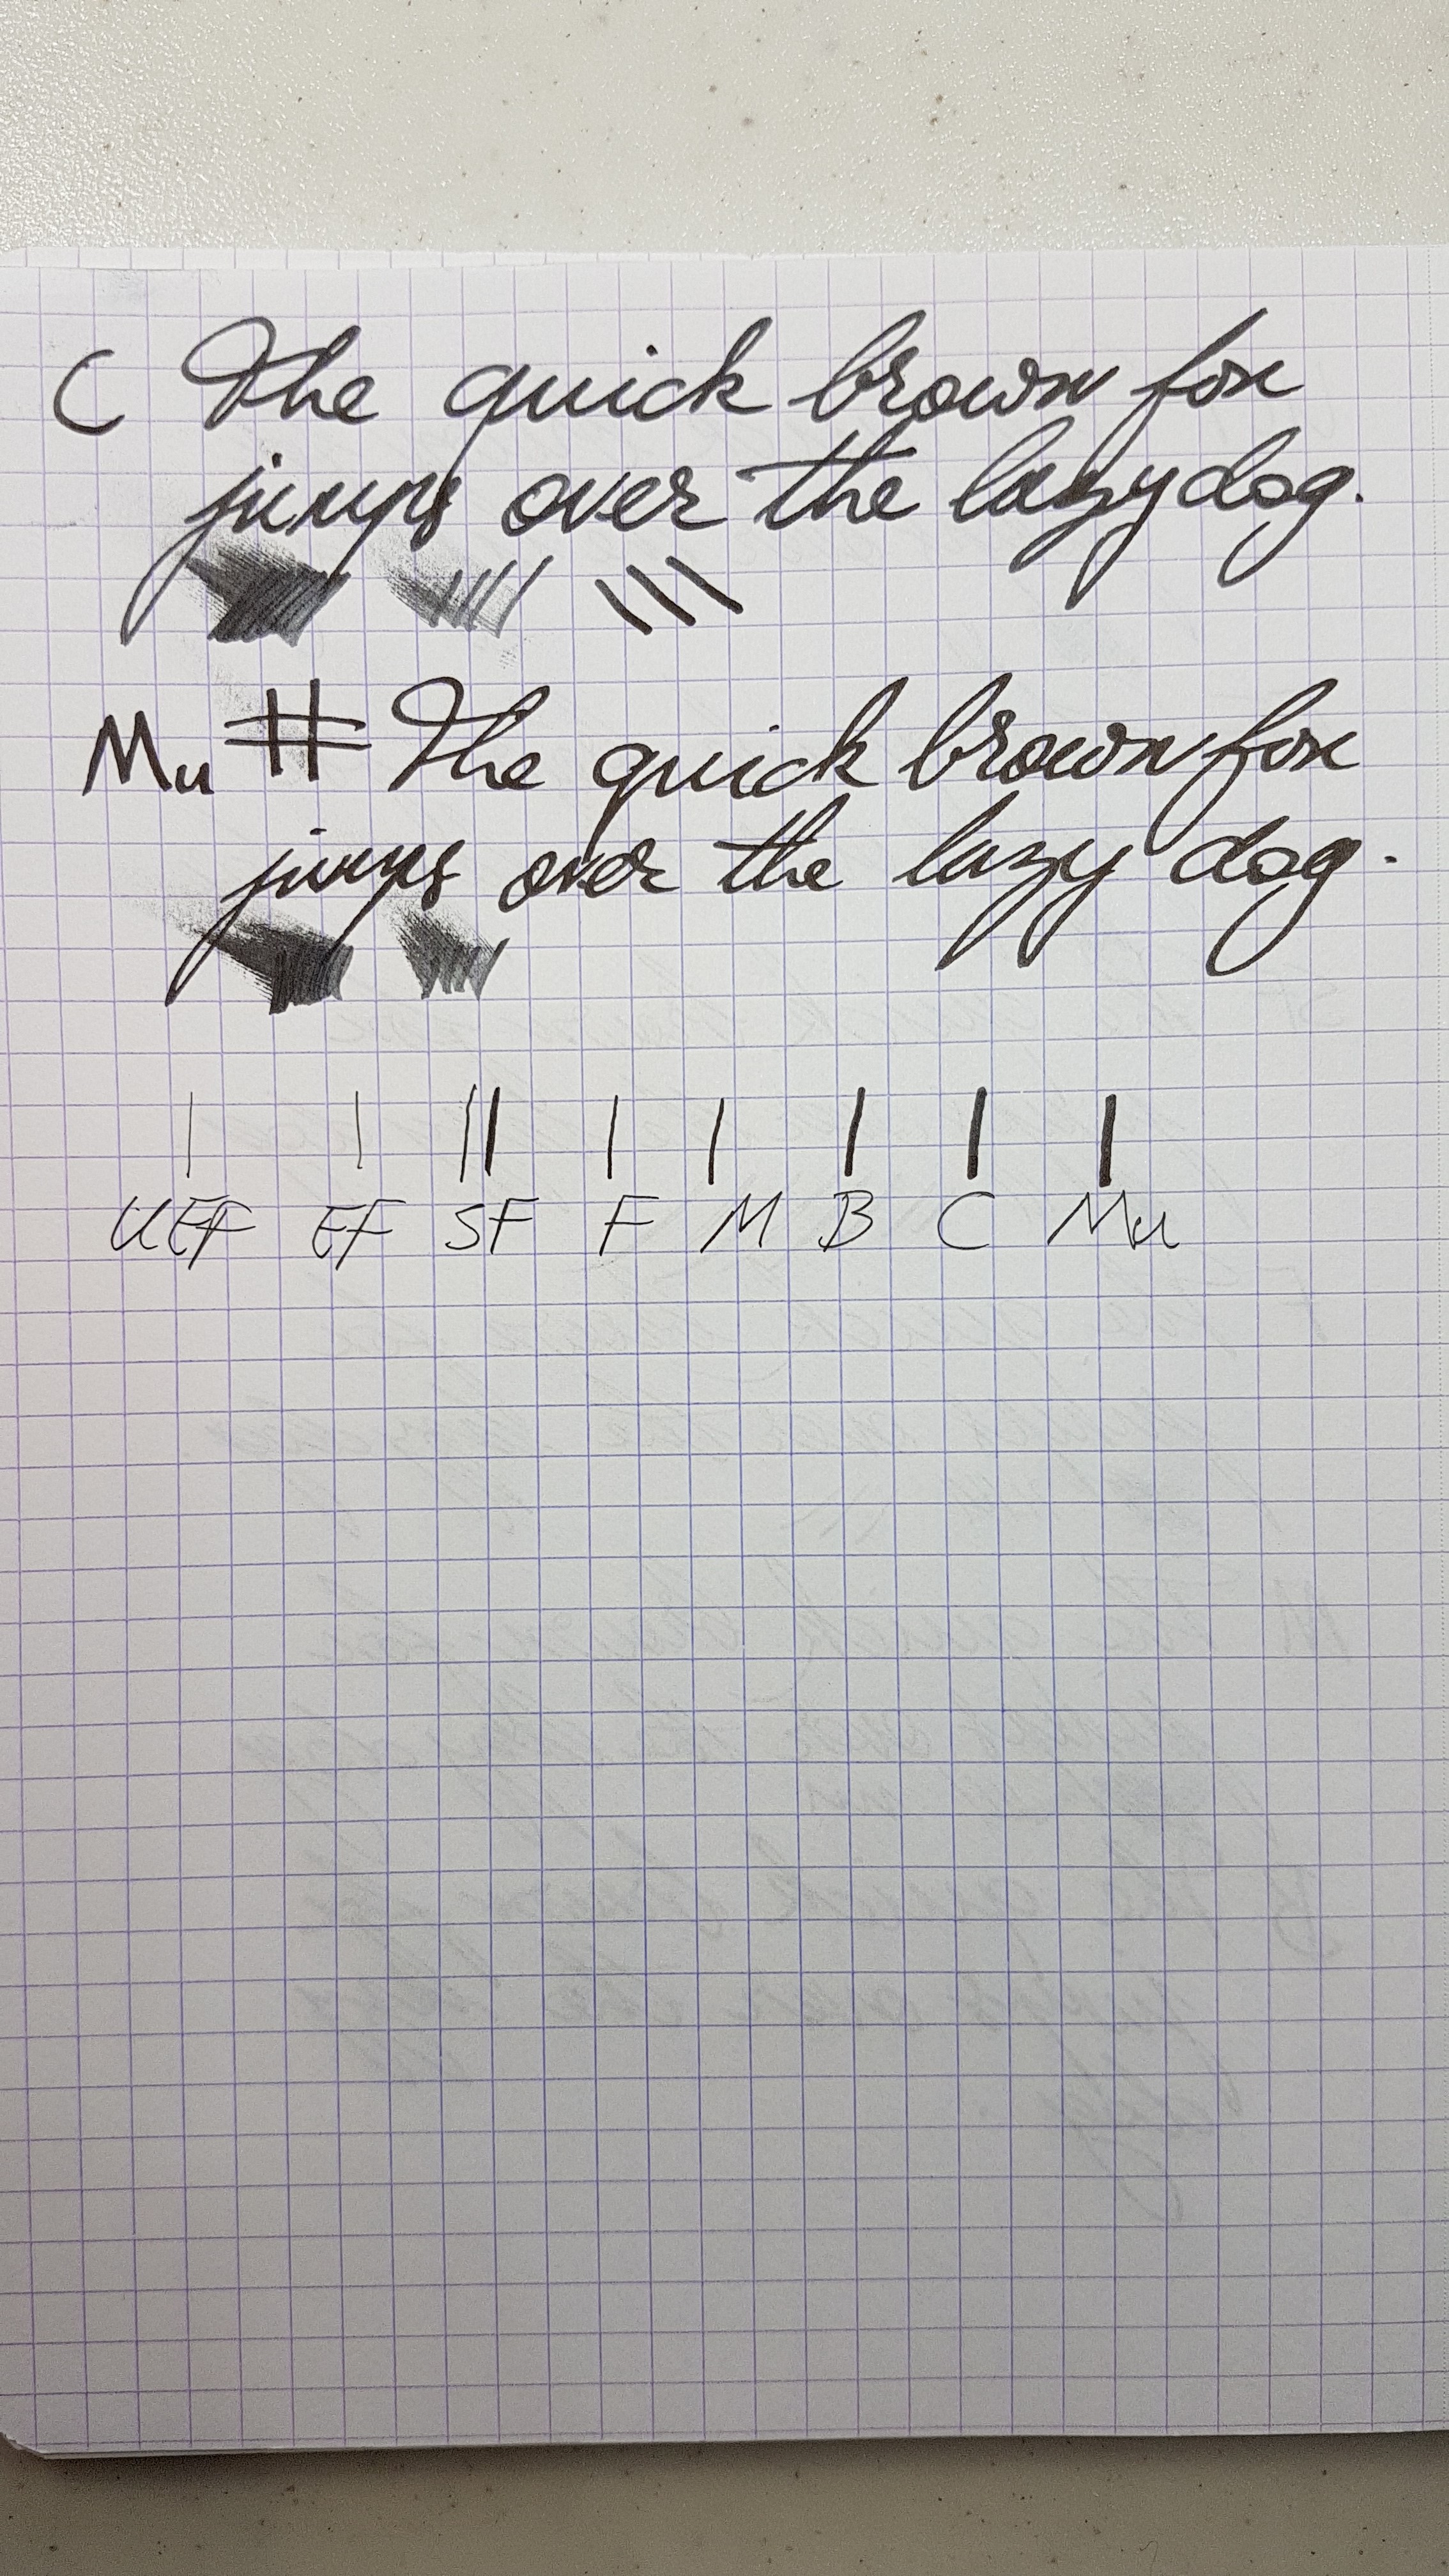 C The quick brown fox
jumps over the lazy dog.
Mu The quick brown fox
jumps over the lazy dog.
UEF EF SF F M B C Mu